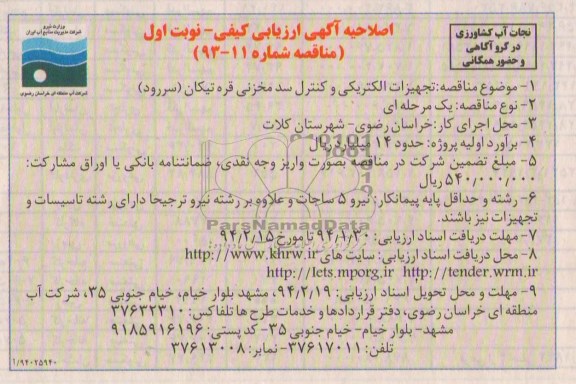 نجات آب کشاورزی
در گرو آگاهی
و حضور همگانی
اصلاحیه آگهی ارزیابی کیفی- نوبت اول
(مناقصه شماره ۱۱-۹۳)
وزارت نیرو
شرکت مدیریت منابع آب ایران
شرکت آب منطقه ای خراسان رضوی
۱- موضوع مناقصه:تجهیزات الکتریکی و کنترل سد مخزنی قره تیکان (سررود)
۲- نوع مناقصه: یک مرحله ای
۳- محل اجرای کار:خراسان رضوی- شهرستان کلات
۴- برآورد اولیه پروژه: حدود ۱۴ میلیارد ریال
۵- مبلغ تضمین شرکت در مناقصه بصورت واریز وجه نقدی، ضمانتنامه بانکی یا اوراق مشارکت:
۵۴۰/۰۰۰/۰۰۰ ریال
۶- رشته و حداقل پایه پیمانکار: نیرو ۵ ساجات و علاوه بر رشته نیرو ترجیحا دارای رشته تاسیسات و
تجهیزات نیز باشند.
ParsNamadData
۷- مهلت دریافت اسناد ارزیابی: ۹۴/۱/۳۰ تا مورخ ۹۴/۲/۱۵
۸- محل دریافت اسناد ارزیابی: سایت های http://www.khrw.ir
http://iets.mporg.ir http://tender.wrm.ir
۹- مهلت و محل تحویل اسناد ارزیابی: ۹۴/۲/۱۹، مشهد بلوار خیام، خیام جنوبی ۳۵، شرکت آب
منطقه ای خراسان رضوی، دفتر قراردادها و خدمات طرح ها تلفاکس: ۳۷۶۳۲۳۱۰
مشهد- بلوار خیام- خیام جنوبی ۳۵- کد پستی: ۹۱۸۵۹۱۶۱۹۶
تلفن: ۳۷۶۱۷۰۱۱- نمابر: ۳۷۶۱۳۰۰۸
۱/۹۴۰۲۵۹۴۰